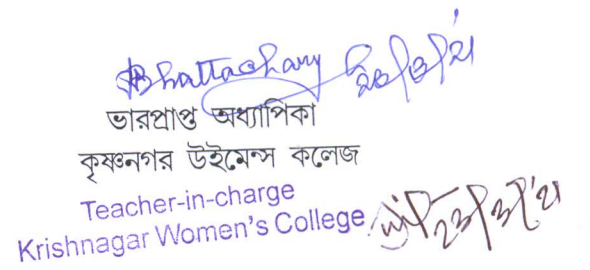 Bhattachary
ভারপ্রাপ্ত অধ্যাপিকা
কৃষ্ণনগর উইমেন্স কলেজ
Teacher-in-charge
Krishnagar Women's College